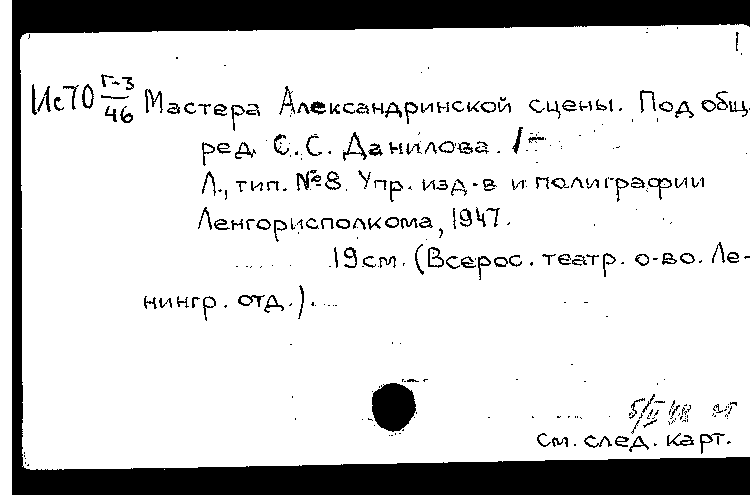 1
Ис70 Г-3/46 Мастера Александринской сцены. Под общ.
ред. С.С. Данилова. 1-
Л., тип. №8. Упр. изд-в и полиграфии
Ленгорисполкома, 1947.
19см. (Всерос. театр. о-во. Ле-
нингр. отд.).
5/II 48
см. след. карт.